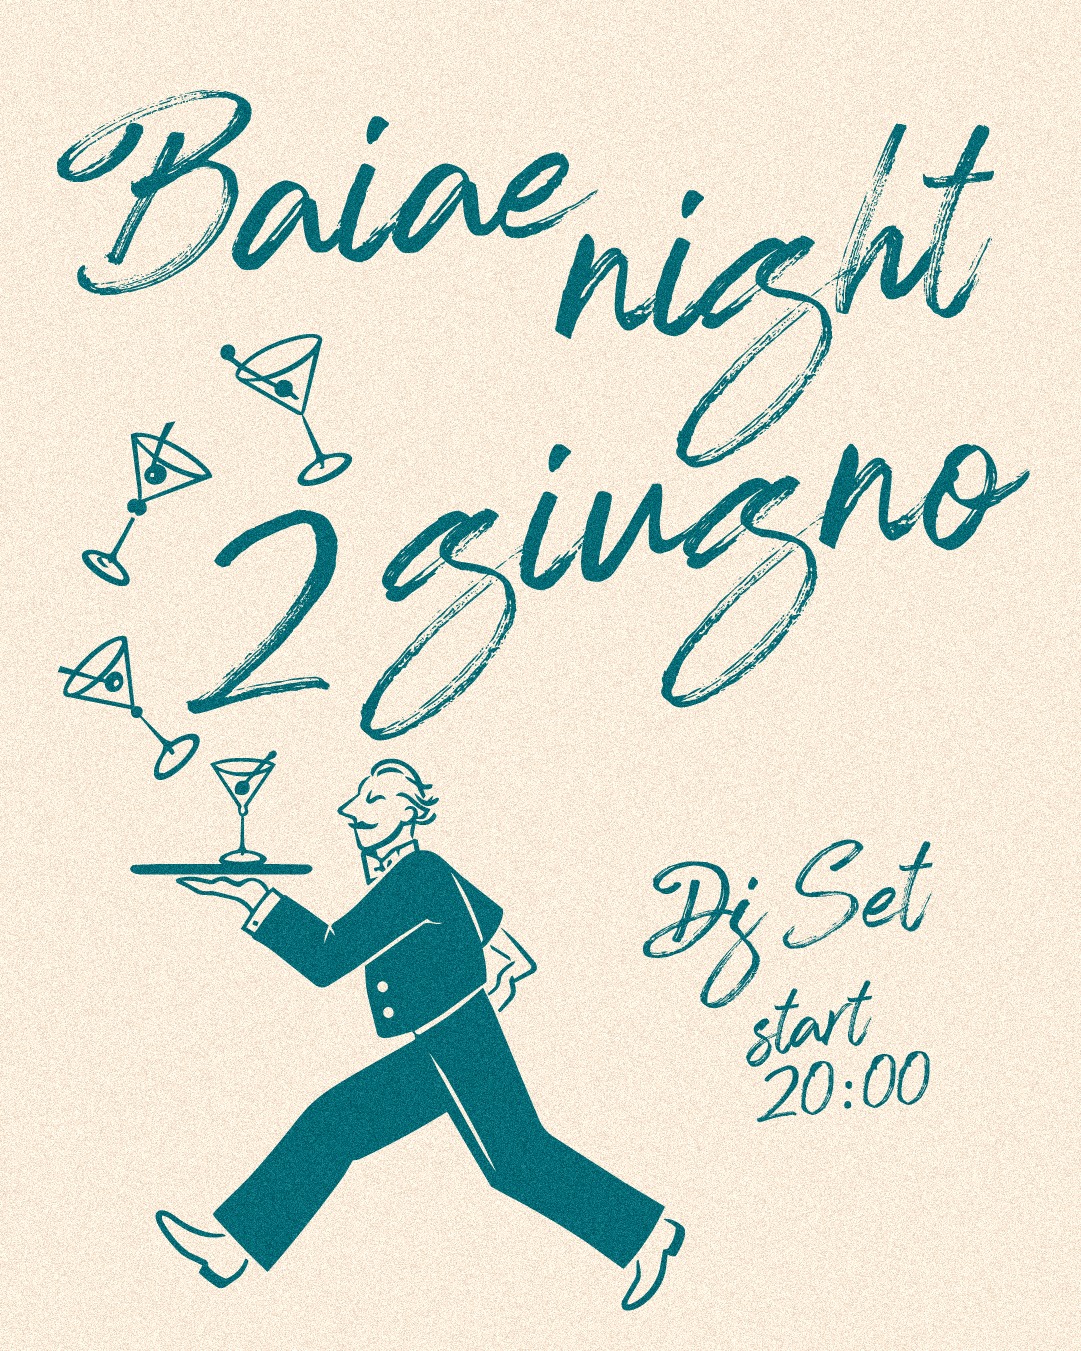 Baiae night
2 giugno
Dj Set
start
20:00